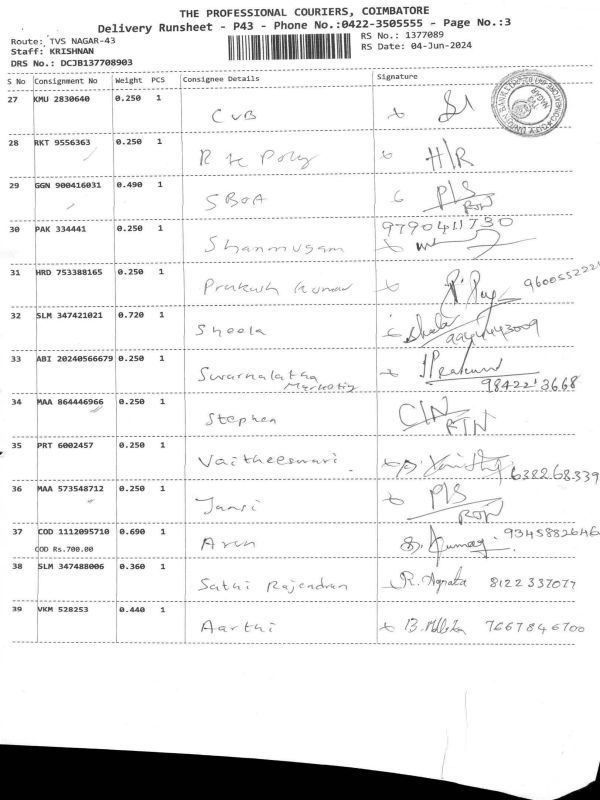 THE PROFESSIONAL COURIERS, COIMBATORE
Delivery Runsheet - P43 - Phone No.:0422-3505555 - Page No.:3
Route: TVS NAGAR-43 RS No.: 1377089
Staff: KRISHNAN RS Date: 04-Jun-2024
DRS No.: DCJB137708903
S No Consignment No Weight PCS Consignee Details Signature
27 KMU 2830640 0.250 1 CUB
28 RKT 9556363 0.250 1 H/R
29 GGN 900416031 0.490 1 SBOA P/S
RTN
30 PAK 334441 0.250 1 Shanmugam 9790411730
31 HRD 753388165 0.250 1 Prakash Kumar
32 SLM 347421021 0.720 1 Sheela
33 ABI 20240566679 0.250 1 Swarnalatha
Marketing
34 MAA 864446966 0.250 1 Stephen C/N
RTN
35 PRT 6002457 0.250 1 Vaitheeswari
36 MAA 573548712 0.250 1 Jansi P/S
RTN
37 COD 1112095710 0.690 1 Arun 9345882646
COD Rs.700.00
38 SLM 347488006 0.360 1 Sathi Rajendran 8122337077
39 VKM 528253 0.440 1 Aarthi 7667846700